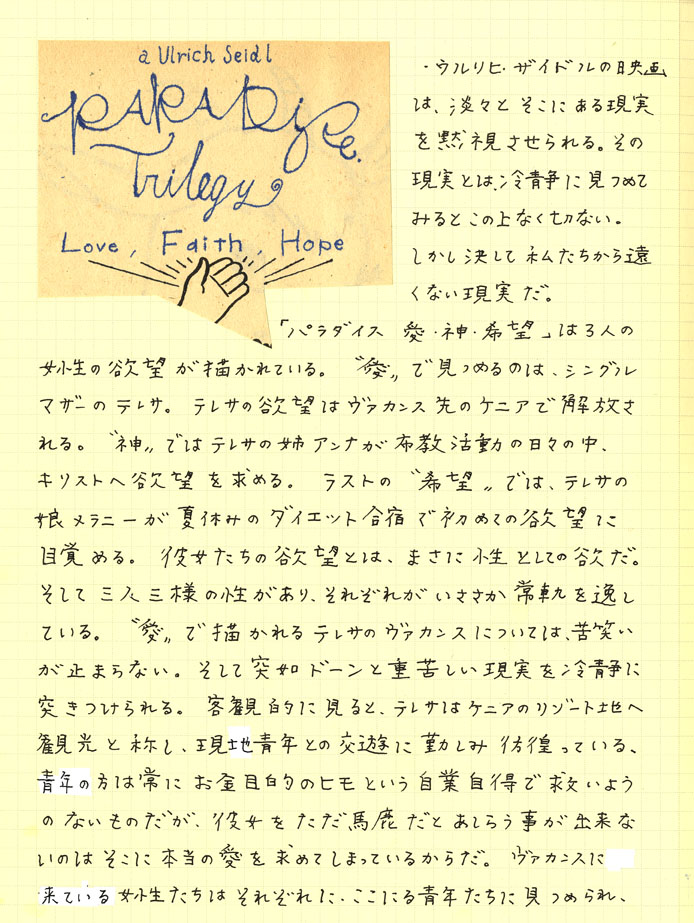 a Ulrich Seidl
PARADise
Trilogy
Love, Faith, Hope
・ウルリヒ・ザイドルの映画
は、淡々とそこにある現実
を黙視させられる。その
現実とは、冷静に見つめて
みるとこの上なく切ない。
しかし決して私たちから遠
くない現実だ。
「パラダイス 愛・神・希望」は3人の
女性の欲望が描かれている。〝愛〟で見つめるのは、シングル
マザーのテレサ。テレサの欲望はヴァカンス先のケニアで解放さ
れる。〝神〟ではテレサの姉アンナが布教活動の日々の中、
キリストへ欲望を求める。ラストの〝希望〟では、テレサの
娘メラニーが夏休みのダイエット合宿で初めての欲望に
目覚める。彼女たちの欲望とは、まさに性としての欲だ。
そして三人三様の性があり、それぞれがいささか常軌を逸し
ている。〝愛〟で描かれるテレサのヴァカンスについては、苦笑い
が止まらない。そして突如ドーンと重苦しい現実を冷静に
突きつけられる。客観的に見ると、テレサはケニアのリゾート地へ
観光と称し、現地青年との交遊に勤しみ彷徨っている、
青年の方は常にお金目的のヒモという自業自得で救いよう
のないものだが、彼女をただ馬鹿だとあしらう事が出来な
いのはそこに本当の愛を求めてしまっているからだ。ヴァカンスに
来ている女性たちはそれぞれに・ここにる青年たちに見つめられ、